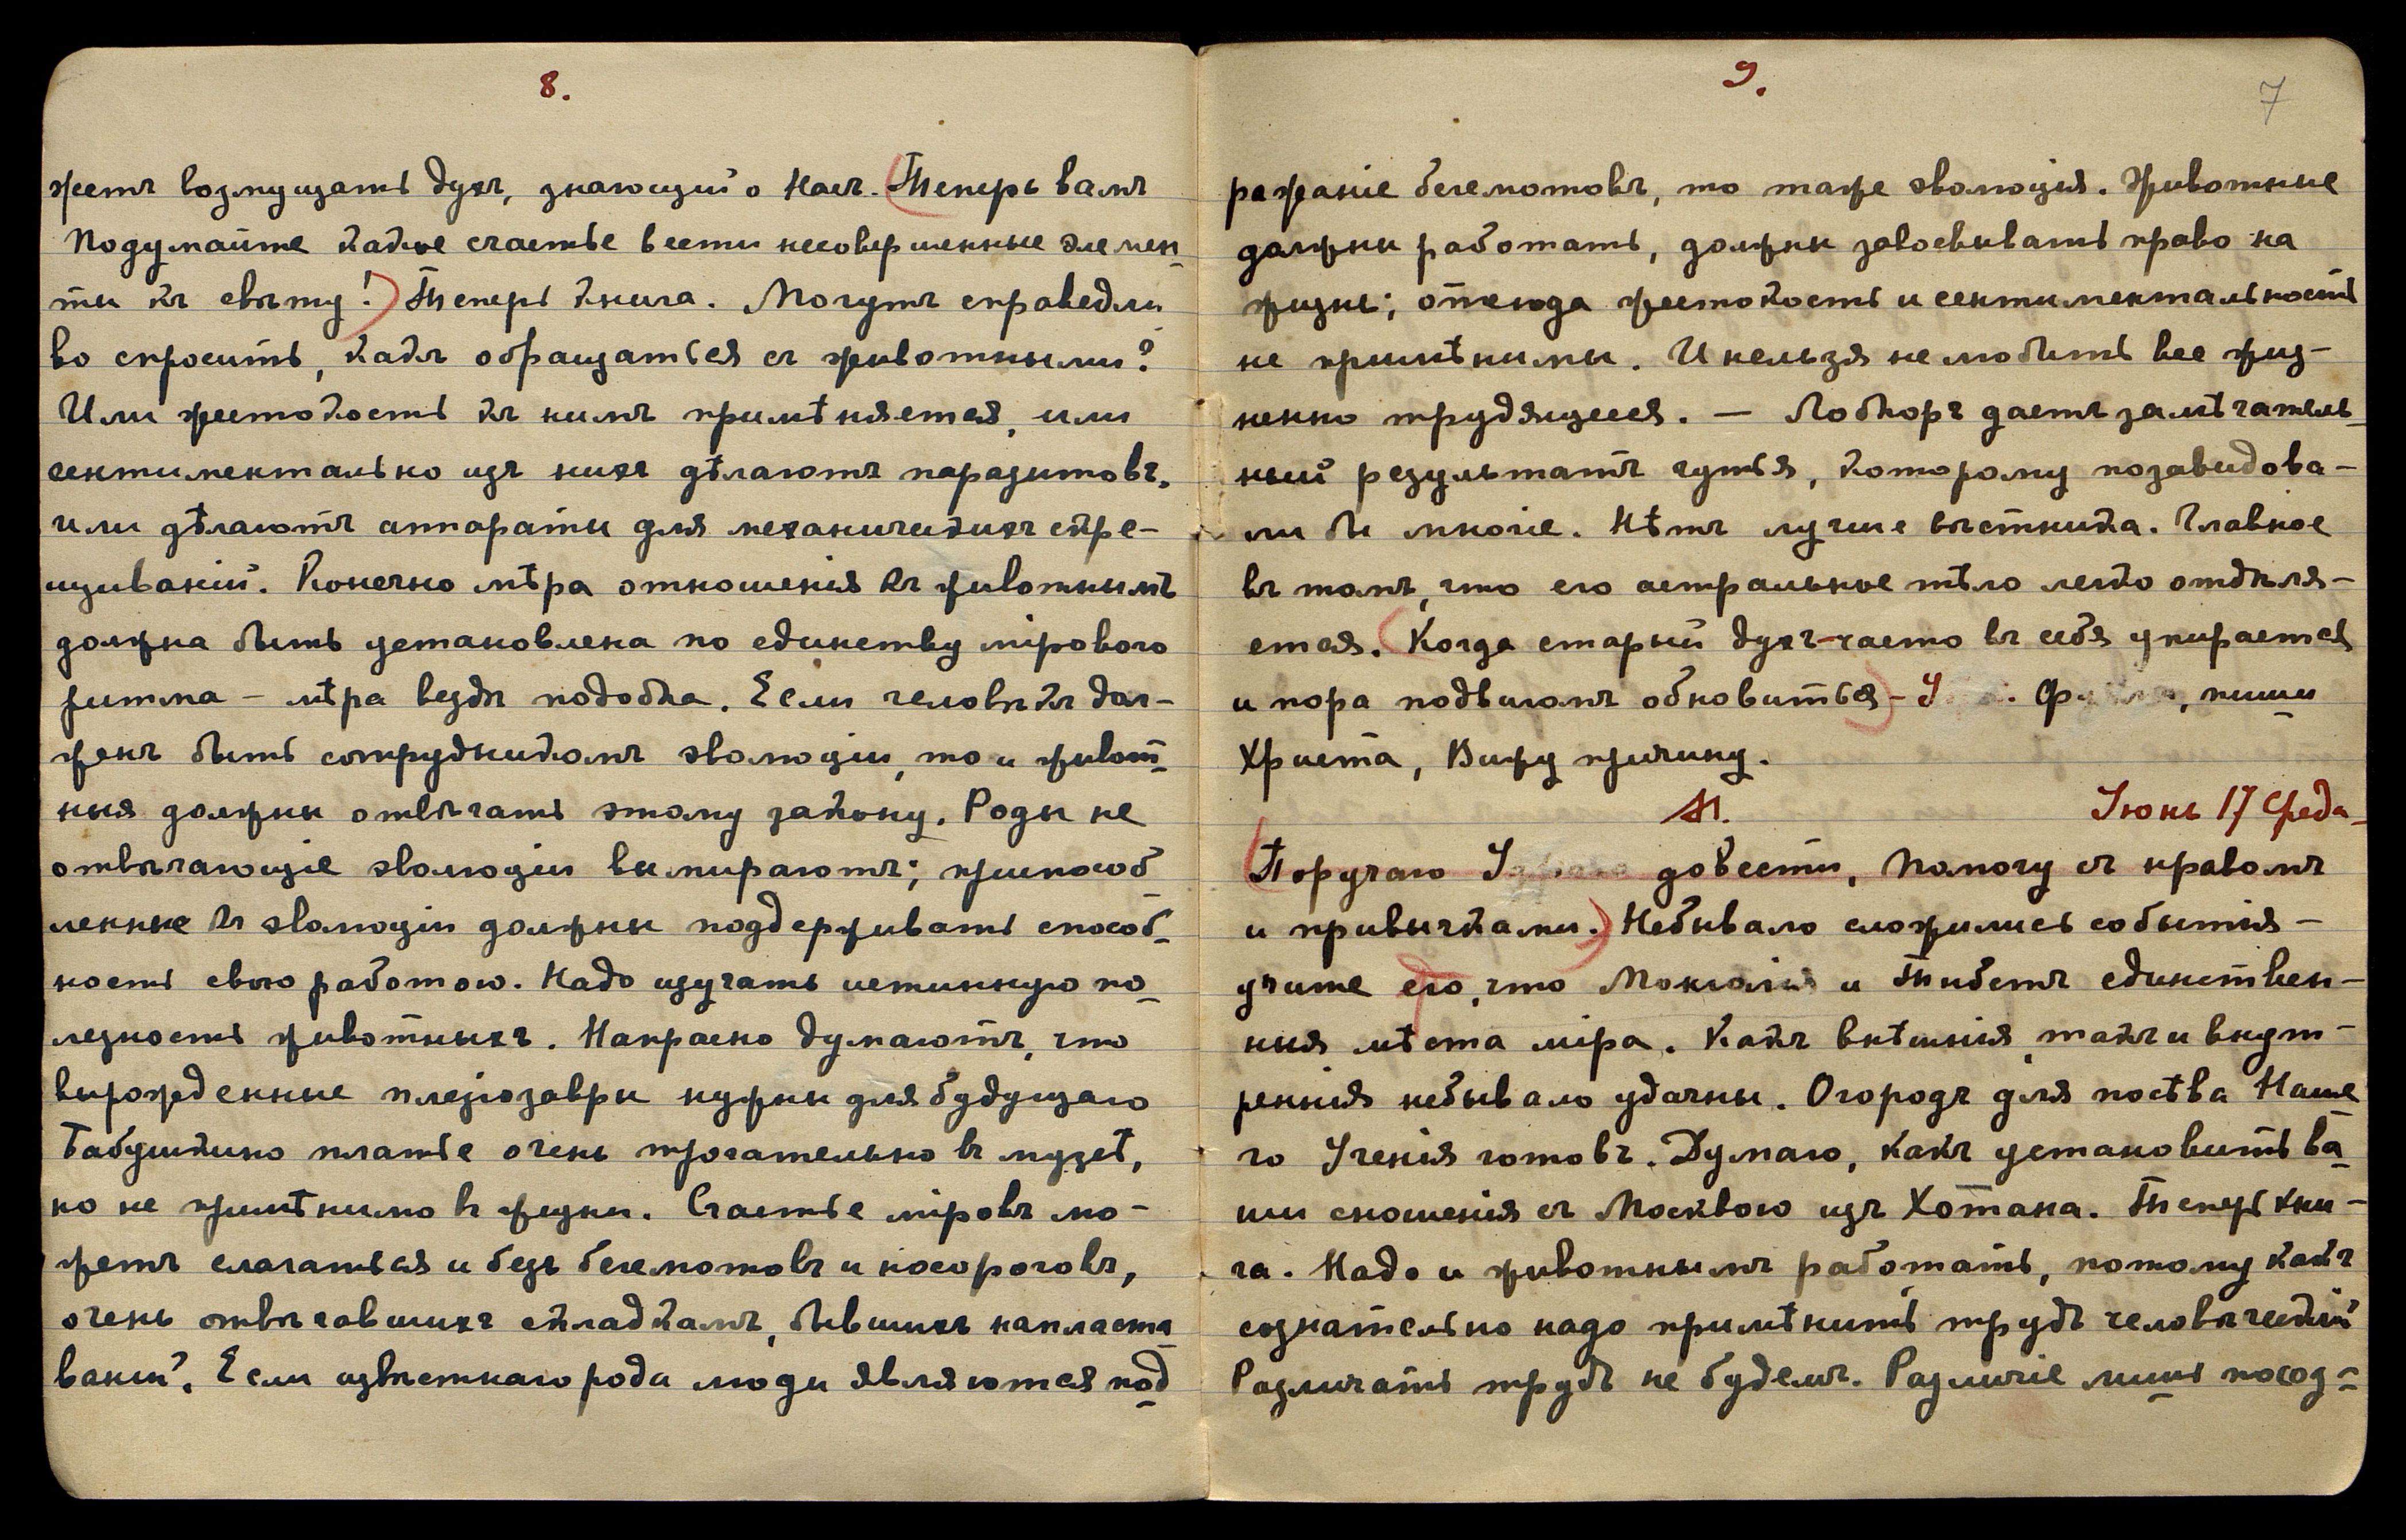 8.
жетъ возмущать духъ, знающій о Насъ. (Теперь валъ
Подумайте какое счастье вести несовершенные элемен-
ты къ свѣту!) Теперь книга. Могутъ справедли
во спросить, какъ обращаться съ животными?
Или жестокость къ нимъ примѣняется, или
сентиментально изъ нихъ дѣлаютъ паразитовъ,
или дѣлаютъ аппараты для механическихъ скре-
щиваній. Конечно мѣра отношенія къ животнымъ
должна быть установлена по единству мірового
ритма – мѣра вездѣ подобна. Если человѣкъ дол-
женъ быть сотрудникомъ эволюціи, то и живот-
ныя должны отвѣчать этому закону. Роды не
отвѣчающіе эволюціи вымираютъ; приспособ-
ленные къ эволюціи должны поддерживать способ-
ность свою работою. Надо изучать истинную по-
лезность животныхъ. Напрасно думаютъ, что
вырожденные плезіозавры нужны для будущаго
Бабушкино платье очень трогательно въ музеѣ,
но не примѣнимо въ жизни. Счастье міровъ мо-
жетъ слагаться и безъ бегемотовъ и носороговъ,
очень отвѣчавшихъ складкамъ, бывшихъ напласто
ваній. Если извѣстнаго рода люди являются под
9.
7
ражаніе бегемотовъ, то таже эволюція. Животные
должны работать, должны завоевывать право на
жизнь; отсюда жестокость и сентиментальность
не примѣнимы. И нельзя не любить все жиз-
ненно трудящееся. – Лобноръ даетъ замѣчатель-
ный результатъ чутья, которому позавидова-
ли бы многіе. Нѣтъ лучше вѣстника. Главное
въ томъ, что его астральное тѣло легко отдѣля-
ется. (Когда старый духъ-часто въ себя упирается
и пора подвигомъ обновиться) – У. Ф, пиши
Христа, Вижу причину.
М. Іюнь 17 Среда
(Поручаю У довести, Помогу съ нравомъ
и привычками.) Небывало сложились событія –
учите его, что Монголія и Тибетъ единствен-
ныя мѣста міра. Какъ внѣшнія, такъ и внут-
реннія небывало удачны. Огородъ для посѣва Наше
го Ученія готовъ. Думаю, какъ установить ва-
ши сношенія съ Москвою изъ Хотана. Теперь кни-
га. Надо и животнымъ работать, потому какъ
сознательно надо примѣнить трудъ человѣческій
Различать трудъ не будемъ. Различіе лишь посоз-